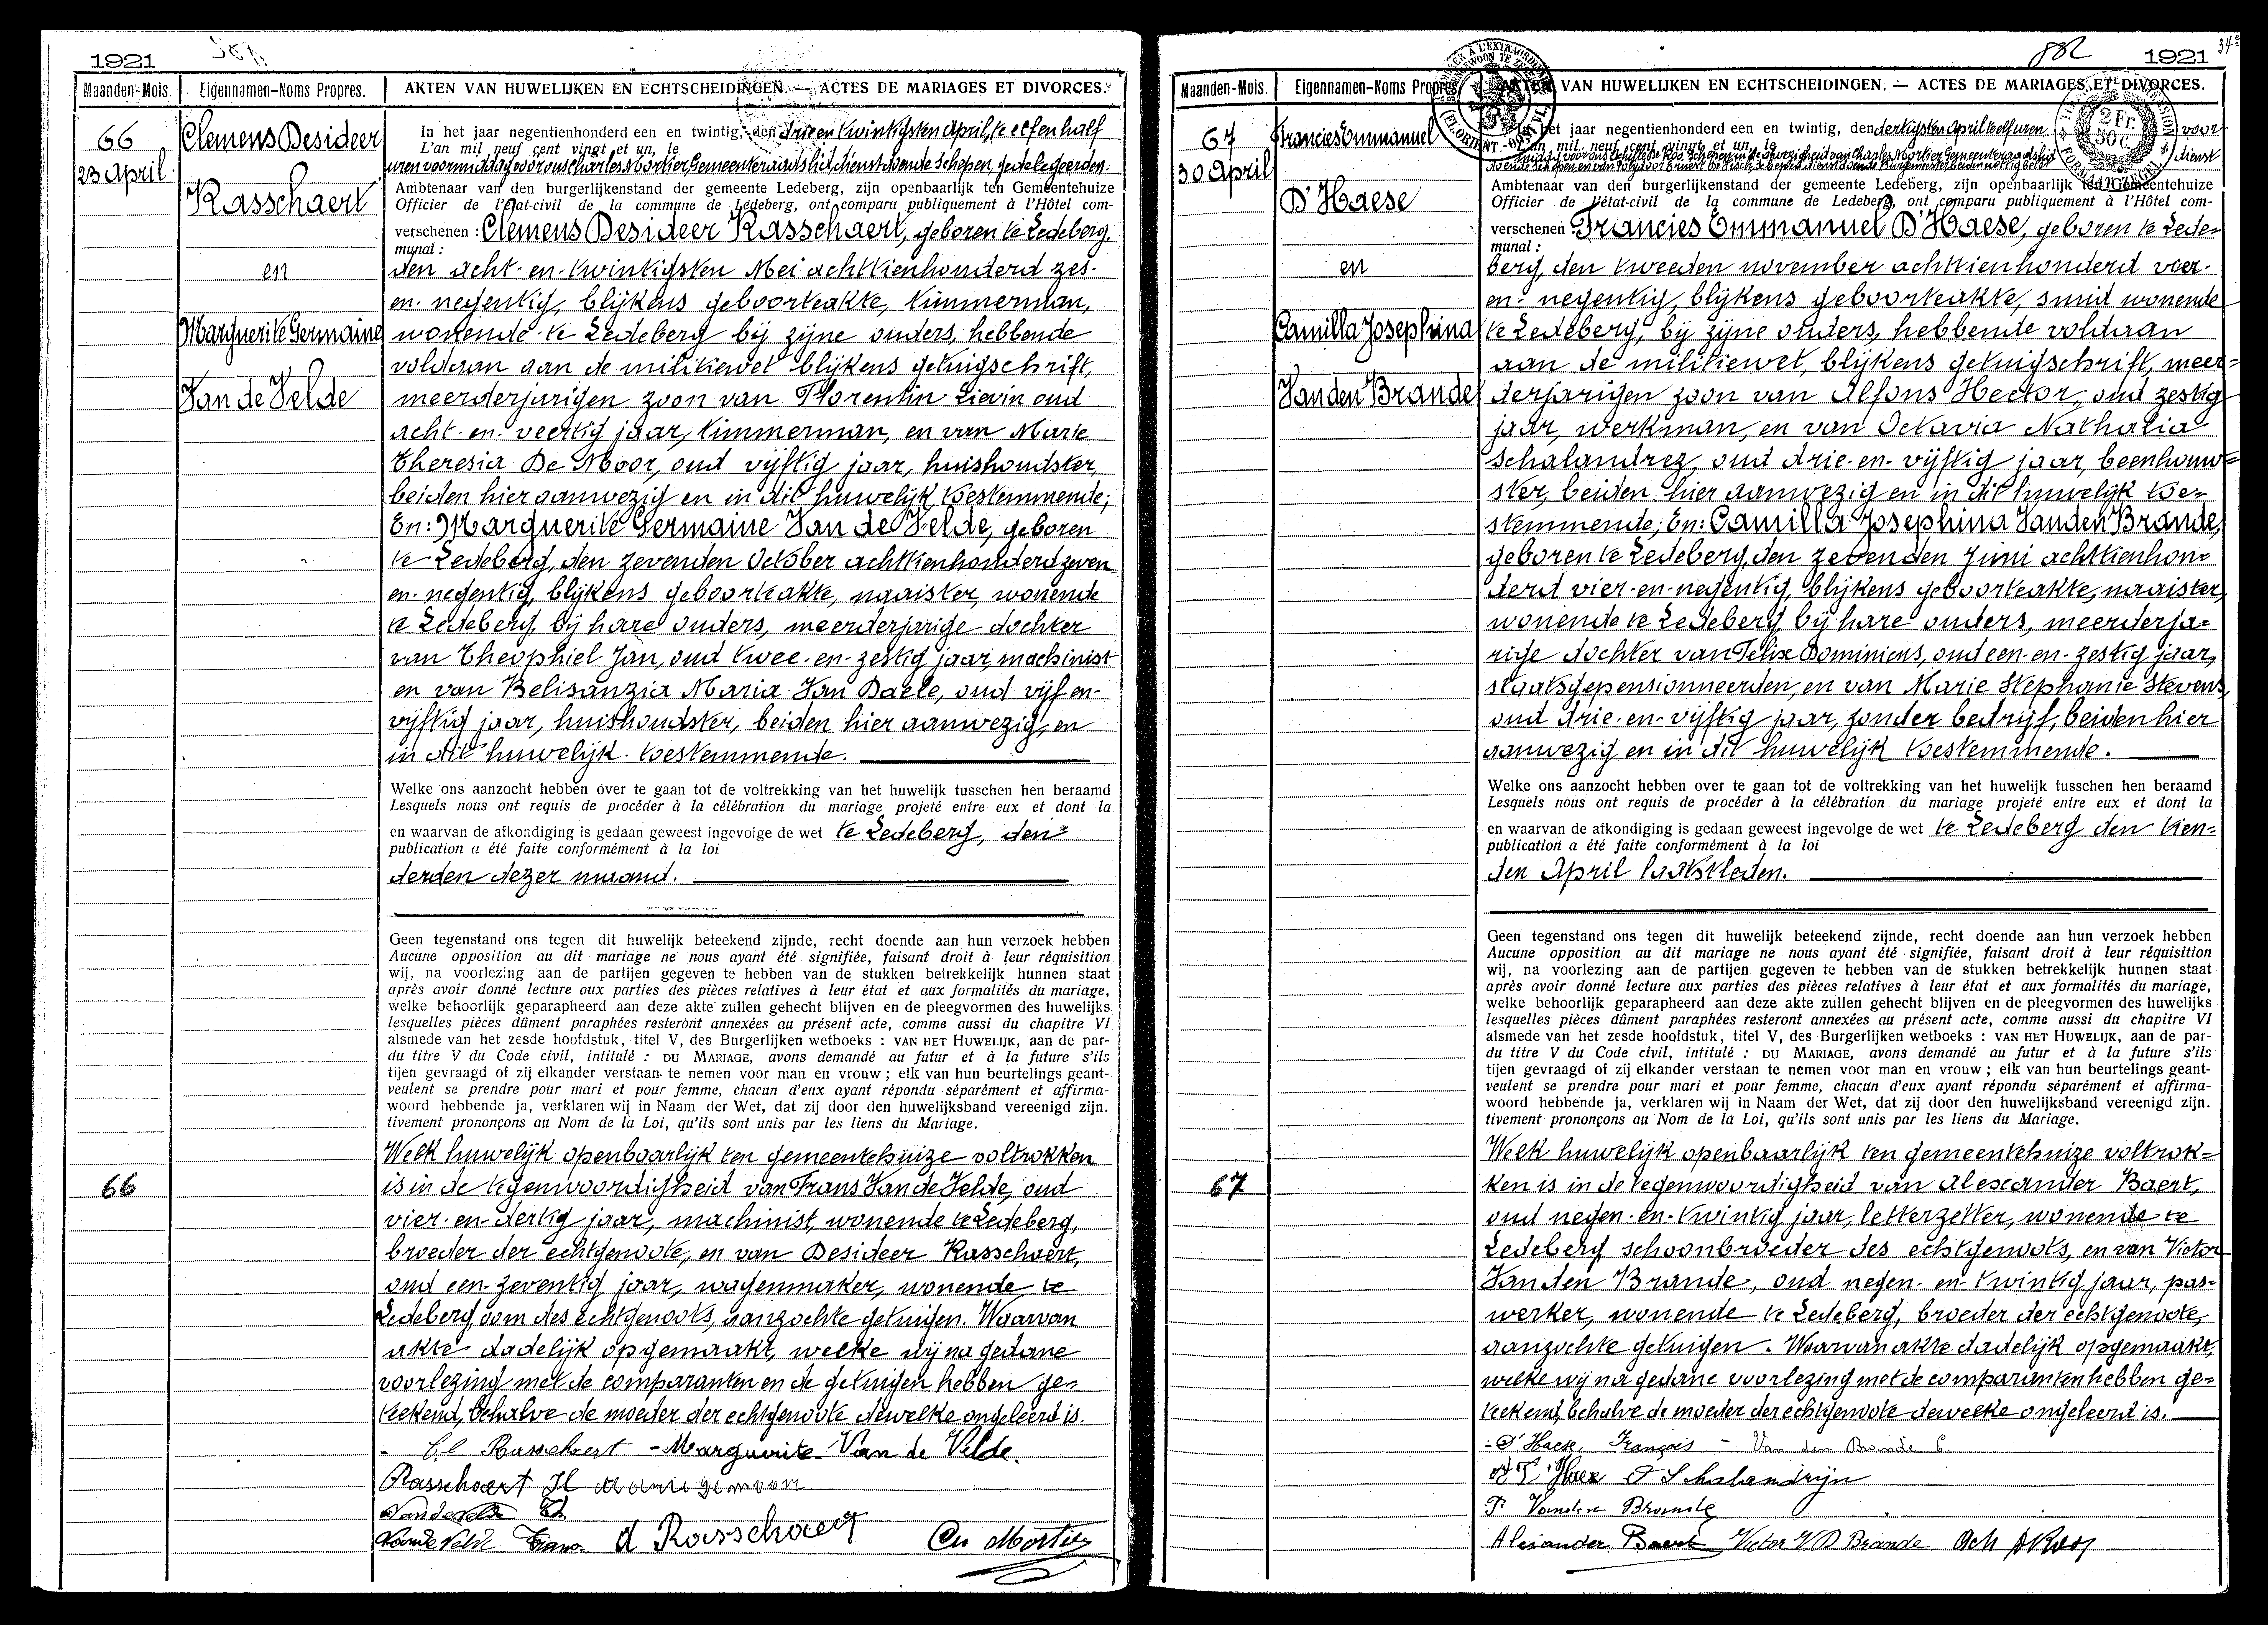 1921
Maanden-Mois.
Eigennamen-Noms Propres.
AKTEN VAN HUWELIJKEN EN ECHTSCHEIDINGEN. — ACTES DE MARIAGES ET DIVORCES.
66
23 April
Clemens Desideer
Rasschaert
en
Marguerite Germaine
Van de Velde
In het jaar negentienhonderd een en twintig, den drie en twintigsten April, te elf en half
L'an mil neuf cent vingt et un, le
uren voormiddag voor ons Charles Mortier Gemeenteraadslid, dienstdoende schepen, gedelegeerden
Ambtenaar van den burgerlijkenstand der gemeente Ledeberg, zijn openbaarlijk ten Gemeentehuize
Officier de l'état-civil de la commune de Ledeberg, ont comparu publiquement à l'Hôtel com-
verschenen : Clemens Desideer Rasschaert, geboren te Ledeberg,
munal :
den acht-en-twintigsten Mei achttienhonderd zes-
en-negentig, blijkens geboorteakte, timmerman,
wonende te Ledeberg bij zijne ouders, hebbende
voldaan aan de militiewet blijkens getuigschrift,
meerderjarigen zoon van Florentin Lievin oud
acht-en-veertig jaar, timmerman, en van Marie
Theresia De Moor, oud vijftig jaar, huishoudster,
beiden hier aanwezig en in dit huwelijk toestemmende;
En: Marguerite Germaine Van de Velde, geboren
te Ledeberg, den zevenden October achttienhonderd zeven-
en-negentig, blijkens geboorteakte, naaister, wonende
te Ledeberg, bij hare ouders, meerderjarige dochter
van Theophiel Jan, oud twee-en-zestig jaar, machinist
en van Belisanzia Maria Van Daele, oud vijf-en-
vijftig jaar, huishoudster, beiden hier aanwezig, en
in dit huwelijk toestemmende.
Welke ons aanzocht hebben over te gaan tot de voltrekking van het huwelijk tusschen hen beraamd
Lesquels nous ont requis de procéder à la célébration du mariage projeté entre eux et dont la
en waarvan de afkondiging is gedaan geweest ingevolge de wet te Ledeberg, den
publication a été faite conformément à la loi
derden dezer maand.
Geen tegenstand ons tegen dit huwelijk beteekend zijnde, recht doende aan hun verzoek hebben
Aucune opposition au dit mariage ne nous ayant été signifiée, faisant droit à leur réquisition
wij, na voorlezing aan de partijen gegeven te hebben van de stukken betrekkelijk hunnen staat
après avoir donné lecture aux parties des pièces relatives à leur état et aux formalités du mariage,
welke behoorlijk geparapheerd aan deze akte zullen gehecht blijven en de pleegvormen des huwelijks
lesquelles pièces dûment paraphées resteront annexées au présent acte, comme aussi du chapitre VI
alsmede van het zesde hoofdstuk, titel V, des Burgerlijken wetboeks : VAN HET HUWELIJK, aan de par-
du titre V du Code civil, intitulé : DU MARIAGE, avons demandé au futur et à la future s'ils
tijen gevraagd of zij elkander verstaan te nemen voor man en vrouw ; elk van hun beurtelings geant-
veulent se prendre pour mari et pour femme, chacun d'eux ayant répondu séparément et affirma-
woord hebbende ja, verklaren wij in Naam der Wet, dat zij door den huwelijksband vereenigd zijn.
tivement prononçons au Nom de la Loi, qu'ils sont unis par les liens du Mariage.
66
Welk huwelijk openbaarlijk ten gemeentehuize voltrokken
is in de tegenwoordigheid van Frans Van de Velde, oud
vier-en-dertig jaar, machinist, wonende te Ledeberg,
broeder der echtgenoote, en van Desideer Rasschaert,
oud een-zeventig jaar, wagenmaker, wonende te
Ledeberg, oom des echtgenoots, aanzochte getuigen. Waarvan
akte dadelijk opgemaakt, welke wij na gedane
voorlezing met de comparanten en de getuigen hebben ge-
teekend, behalve de moeder der echtgenoote dewelke ongeleerd is.
Cl Rasschaert - Marguerite Van de Velde.
Rasschaert Fl Marie Demoor
Vandevelde Th
Van de Velde Frans d Rasschaert Ch Mortier
882
1921
34e
Maanden-Mois.
Eigennamen-Noms Propres.
AKTEN VAN HUWELIJKEN EN ECHTSCHEIDINGEN. — ACTES DE MARIAGES ET DIVORCES.
2 Fr. 50 C.
67
30 April
Francies Emmanuel
D'Haese
en
Camilla Josephina
Van den Brande
In het jaar negentienhonderd een en twintig, den dertigsten April te elf uren voor-
L'an mil neuf cent vingt et un, le
middag voor ons Achille De Roo, schepen, in de afwezigheid van Charles Mortier Gemeenteraadslid dienst
Ambtenaar van den burgerlijkenstand der gemeente Ledeberg, zijn openbaarlijk ten Gemeentehuize
Officier de l'état-civil de la commune de Ledeberg, ont comparu publiquement à l'Hôtel com-
verschenen Francies Emmanuel D'Haese, geboren te Lede-
munal :
berg, den tweeden november achttienhonderd vier-
en-negentig, blijkens geboorteakte, smid wonende
te Ledeberg, bij zijne ouders, hebbende voldaan
aan de militiewet, blijkens getuigschrift, meer-
derjarigen zoon van Alfons Hector, oud zestig
jaar, werkman, en van Octavia Nathalia
Schalandrez, oud drie-en-vijftig jaar, beenhouw-
ster, beiden hier aanwezig en in dit huwelijk toe-
stemmende; En: Camilla Josephina Van den Brande,
geboren te Ledeberg, den zevenden Juni achttienhon-
derd vier-en-negentig, blijkens geboorteakte, naaister,
wonende te Ledeberg, bij hare ouders, meerderja-
rige dochter van Felix Dominicus, oud een-en-zestig jaar,
staatsgepensionneerden, en van Marie Stephanie Stevens,
oud drie-en-vijftig jaar, zonder bedrijf, beiden hier
aanwezig en in dit huwelijk toestemmende.
Welke ons aanzocht hebben over te gaan tot de voltrekking van het huwelijk tusschen hen beraamd
Lesquels nous ont requis de procéder à la célébration du mariage projeté entre eux et dont la
en waarvan de afkondiging is gedaan geweest ingevolge de wet te Ledeberg den tien-
publication a été faite conformément à la loi
den April laatstleden.
Geen tegenstand ons tegen dit huwelijk beteekend zijnde, recht doende aan hun verzoek hebben
Aucune opposition au dit mariage ne nous ayant été signifiée, faisant droit à leur réquisition
wij, na voorlezing aan de partijen gegeven te hebben van de stukken betrekkelijk hunnen staat
après avoir donné lecture aux parties des pièces relatives à leur état et aux formalités du mariage,
welke behoorlijk geparapheerd aan deze akte zullen gehecht blijven en de pleegvormen des huwelijks
lesquelles pièces dûment paraphées resteront annexées au présent acte, comme aussi du chapitre VI
alsmede van het zesde hoofdstuk, titel V, des Burgerlijken wetboeks : VAN HET HUWELIJK, aan de par-
du titre V du Code civil, intitulé : DU MARIAGE, avons demandé au futur et à la future s'ils
tijen gevraagd of zij elkander verstaan te nemen voor man en vrouw ; elk van hun beurtelings geant-
veulent se prendre pour mari et pour femme, chacun d'eux ayant répondu séparément et affirma-
woord hebbende ja, verklaren wij in Naam der Wet, dat zij door den huwelijksband vereenigd zijn.
tivement prononçons au Nom de la Loi, qu'ils sont unis par les liens du Mariage.
67
Welk huwelijk openbaarlijk ten gemeentehuize voltrok-
ken is in de tegenwoordigheid van Alexander Baert,
oud negen-en-twintig jaar, letterzetter, wonende te
Ledeberg, schoonbroeder des echtgenoots, en van Victor
Van den Brande, oud negen-en-twintig jaar, pas-
werker, wonende te Ledeberg, broeder der echtgenoote,
aanzochte getuigen. Waarvan akte dadelijk opgemaakt,
welke wij na gedane voorlezing met de comparanten hebben ge-
teekend, behalve de moeder der echtgenoote dewelke ongeleerd is.
D'Haese, François - Van den Brande C.
D'Haese Schalandrijn
F Vanden Brande
Alexander Baert Victor VD Brande Ach DRoo